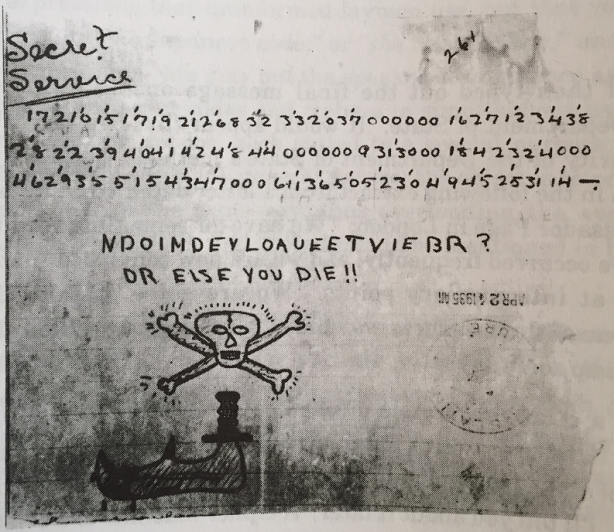 Secret
Service
261
17210151719 212683 2 332037 000000 1627123438
2822394041424844 000000 9313000 1842324000
46293551543 47000 611365052304945253114 —
NDOIMDEYLOAUEETVIEBR?
OR ELSE YOU DIE!!
APR 24 1935